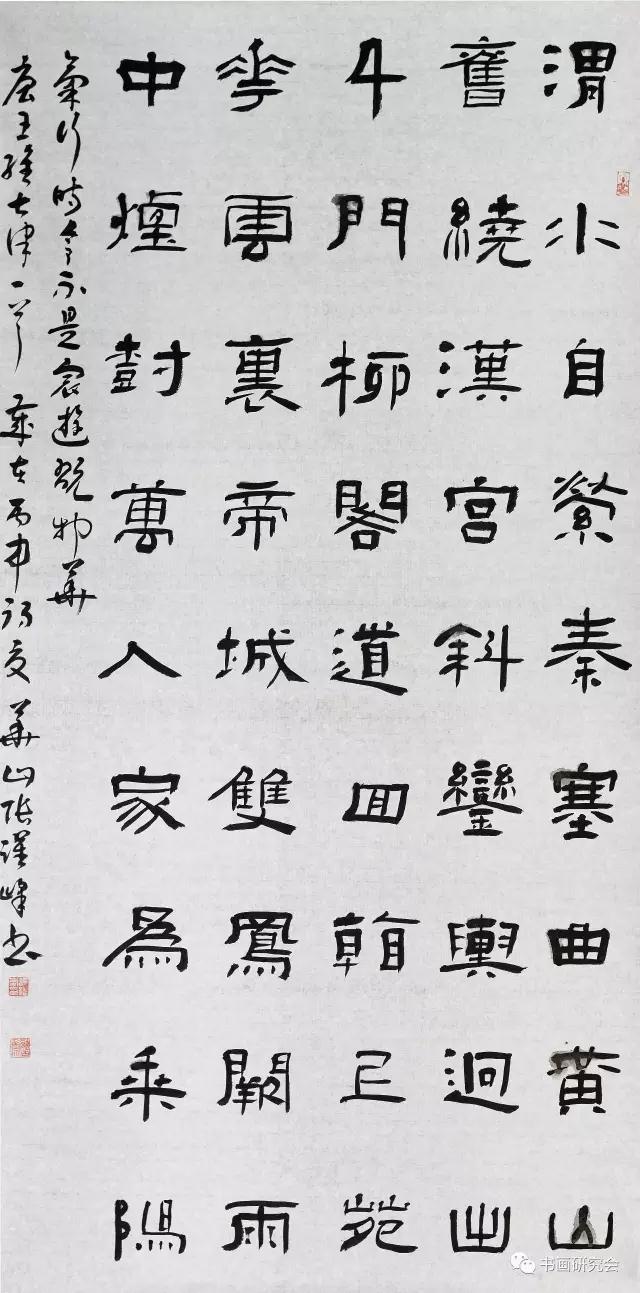 渭水自縈秦塞曲黄山
舊繞漢宫斜鑾輿迥出
千門柳閣道回看上苑
華雲裏帝城雙鳳闕雨
中煙樹萬人家為乘陽
氣行時令不是宸遊翫物華
唐王維七律一首 歲在丙申初夏 華山張漢峰書
书画研究会